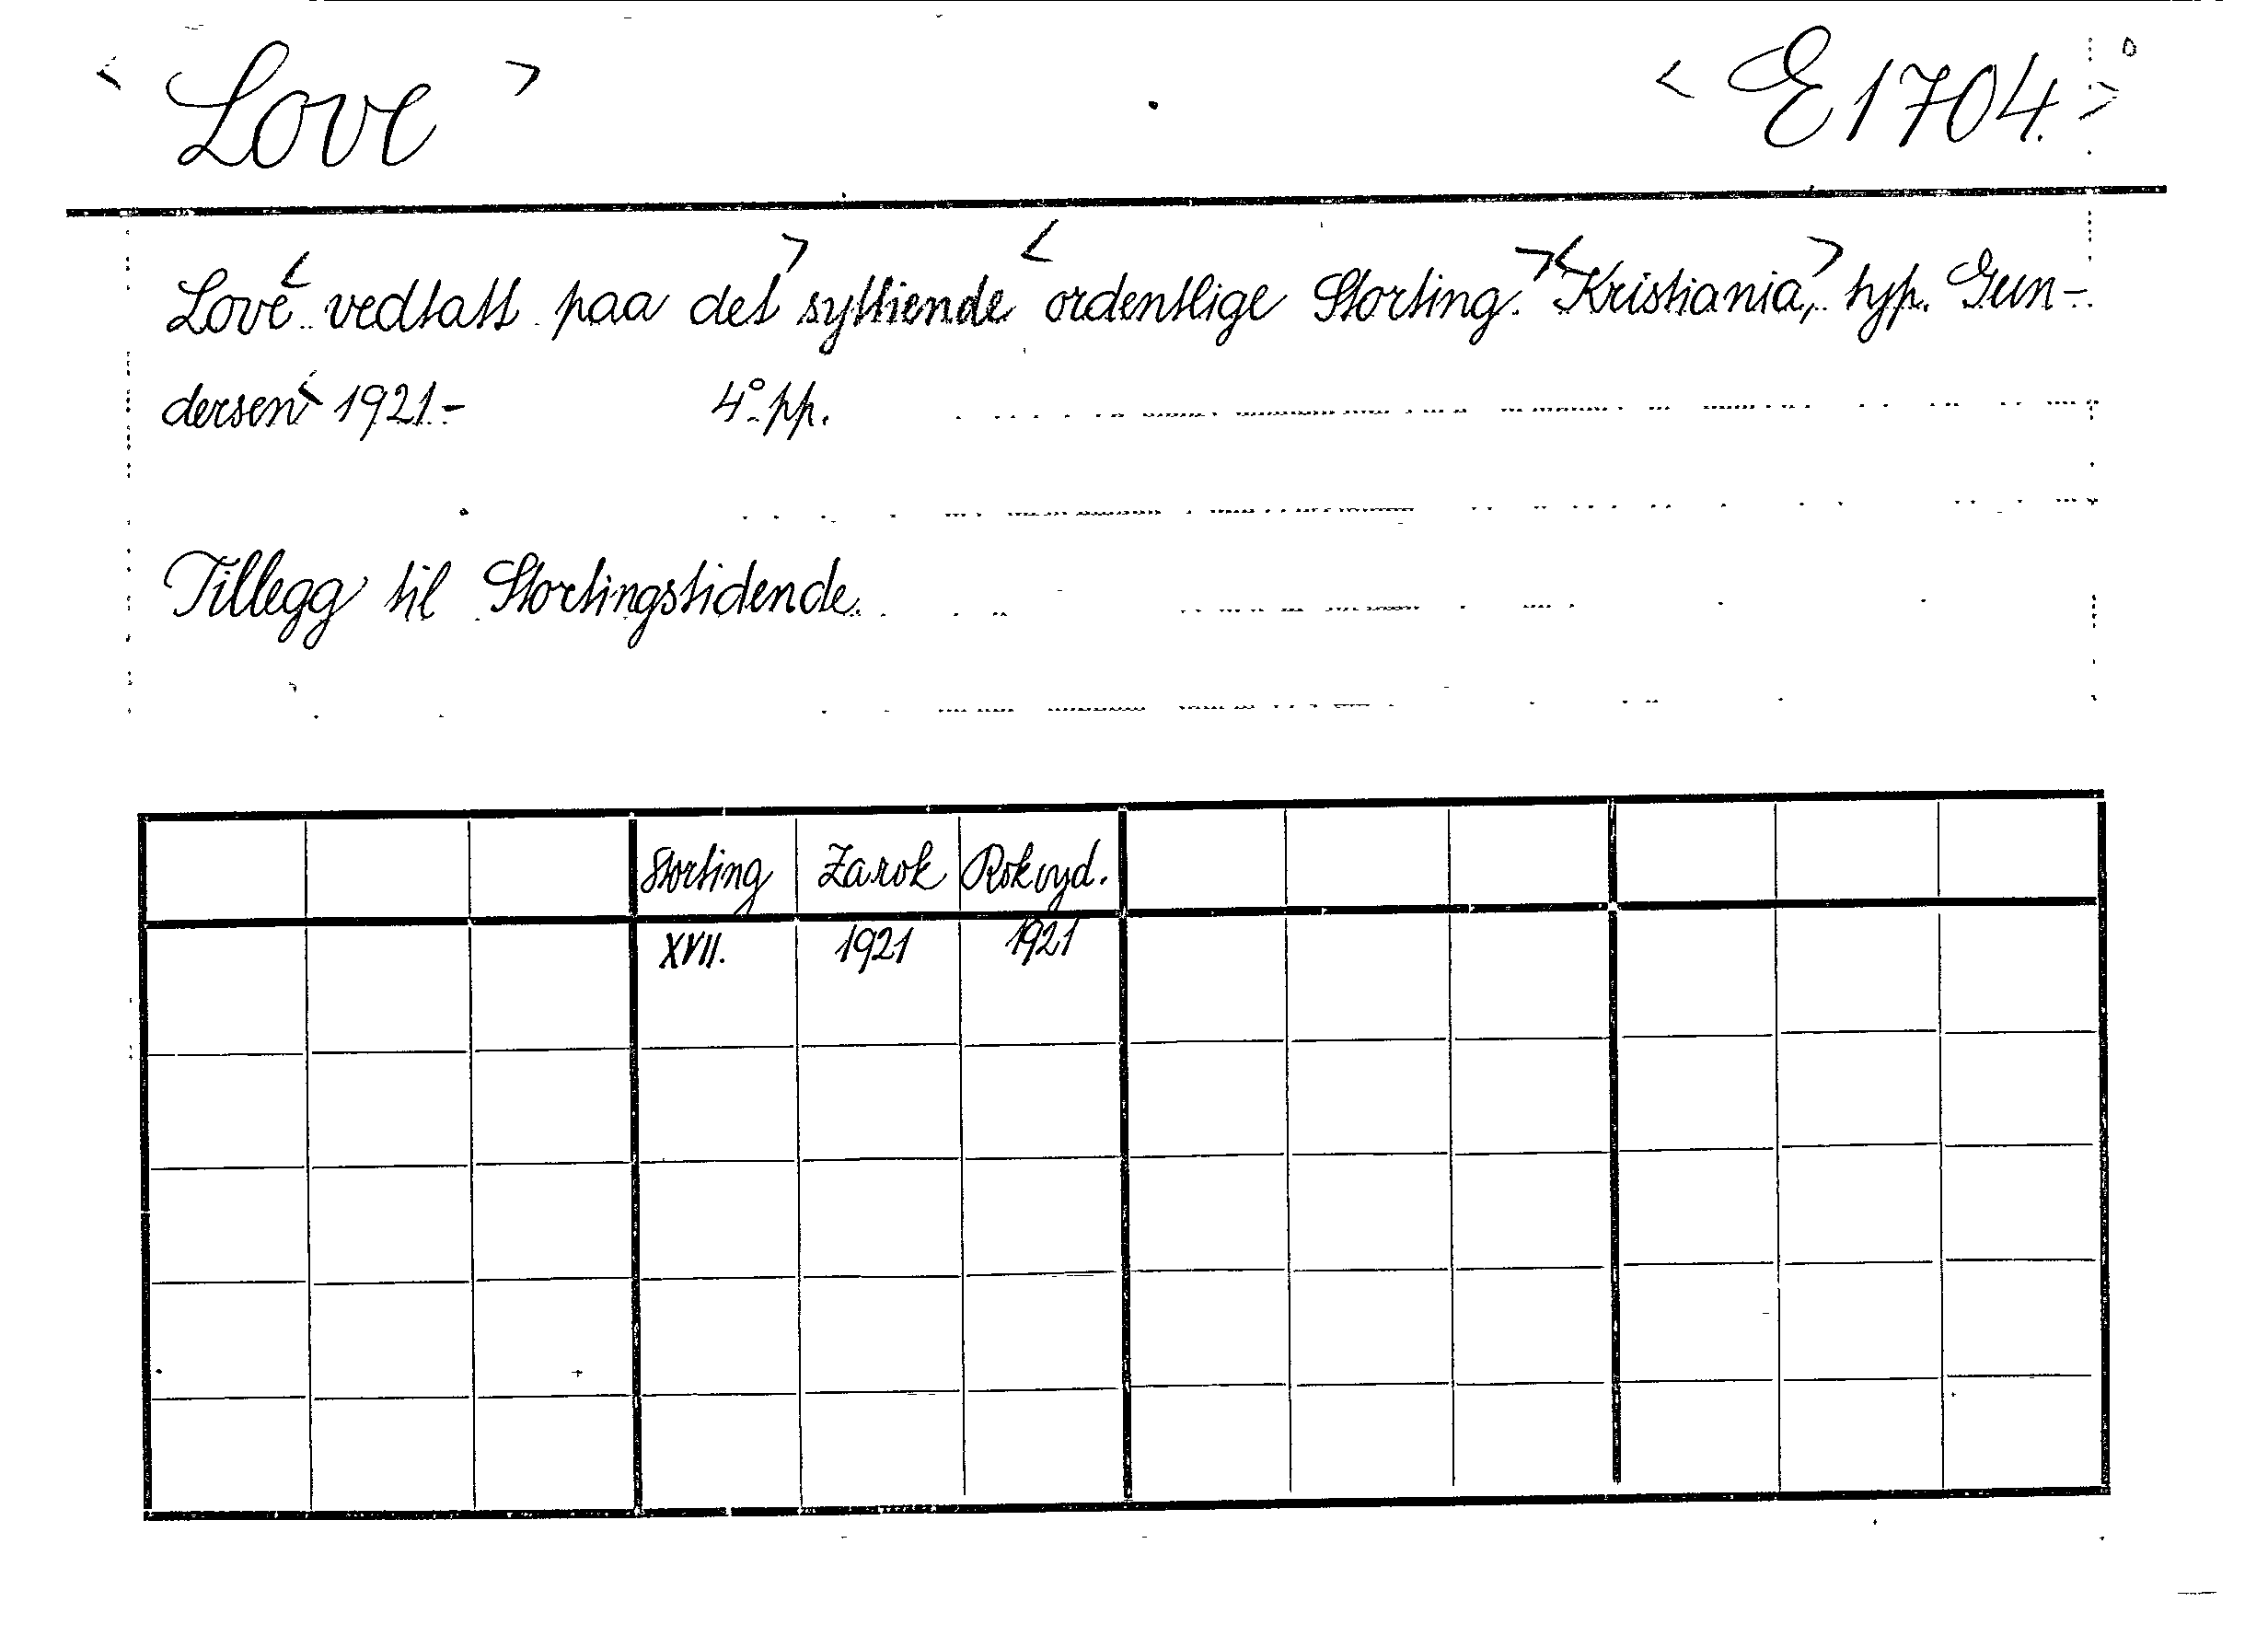 < Love > < E 1704. >
Love < vedtatt paa det > syttiende < ordentlige Storting. > < Kristiania, > typ. Gun-
dersen < 1921.- 4° pp.
Tillegg til Stortingstidende.
Storting Za rok Rok vyd.
XVII. 1921 1921